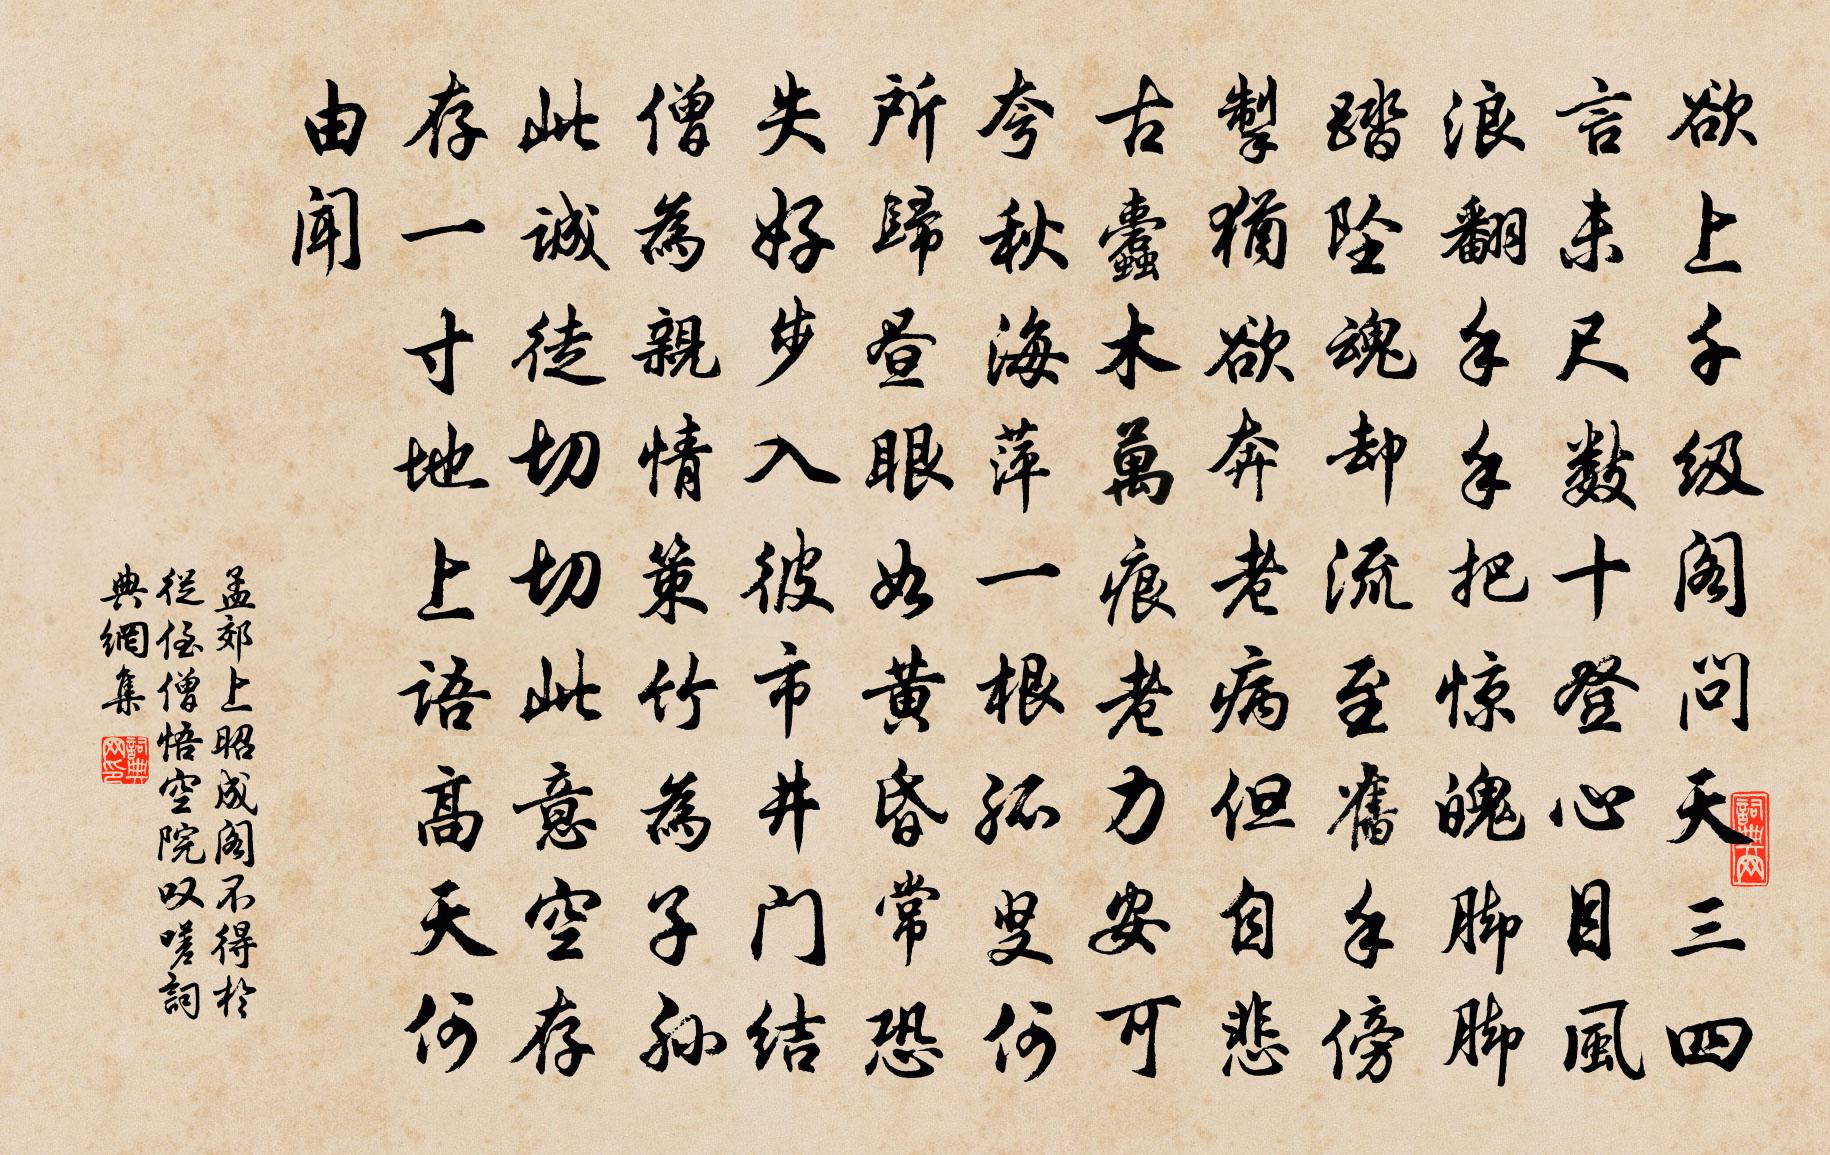 欲上千级阁问天三四
言未尺数十登心目风
浪翻手手把惊魄脚脚
踏坠魂却流至旧手傍
掣犹欲奔老病但自悲
古蠹木万痕老力安可
夸秋海萍一根孤叟何
所归昼眼如黄昏常恐
失好步入彼市井门结
僧为亲情策竹为子孙
此诚徒切切此意空存
存一寸地上语高天何
由闻
孟郊上昭成阁不得於
從侄僧悟空院叹嗟詞
典網集
詞典网
詞典网印